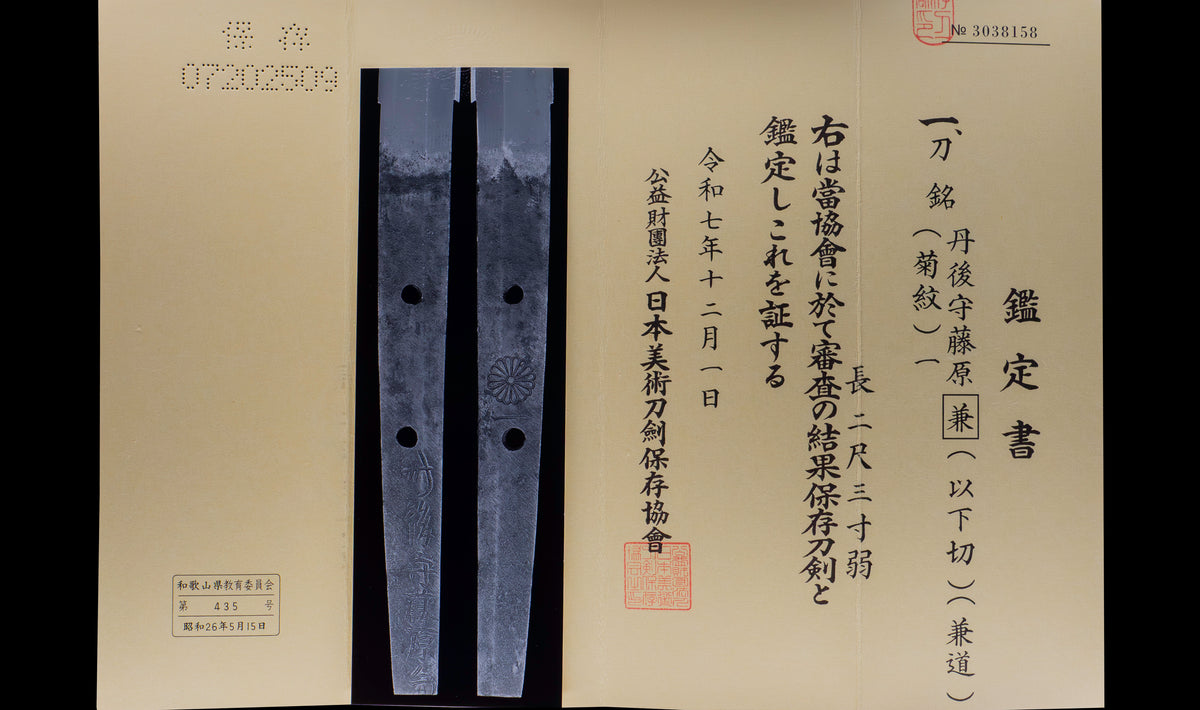 № 3038158
鑑定書
一、刀 銘 丹後守藤原兼(以下切)(兼道)
(菊紋)一
長 二尺三寸弱
右は當協會に於て審査の結果保存刀剣と
鑑定しこれを証する
令和七年十二月一日
公益財團法人 日本美術刀劍保存協會
保存
07202509
和歌山県教育委員会
第 435 号
昭和26年5月15日